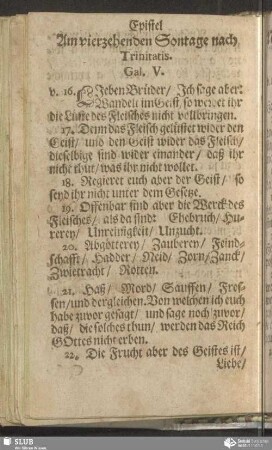 Epistel
Am vierzehenden Sontage nach
Trinitatis.
Gal. V.
v. 16. Lieben Brüder/ Jch sage aber:
Wandelt im Geist, so werdet ihr
die Lüste des Fleisches nicht vollbringen.
17. Denn das Fleisch gelüstet wider den
Geist/ und den Geist wider das Fleisch/
dieselbige sind wider einander/ daß ihr
nicht thut/ was ihr nicht wollet.
18. Regieret euch aber der Geist/ so
seyd ihr nicht unter dem Gesetze.
19. Offenbar sind aber die Werck des
Fleisches/ als da sind: Ehebruch/ Hu-
rerey/ Unreinigkeit/ Unzucht.
20. Abgötterey/ Zauberey/ Feind-
schafft/ Hadder/ Neid/ Zorn/ Zanck/
Zwietracht/ Rotten.
21. Haß/ Mord/ Sauffen/ Fres-
sen/ und dergleichen. Von welchen ich euch
habe zuvor gesagt/ und sage noch zuvor/
daß/ die solches thun/ werden das Reich
GOttes nicht erben.
22. Die Frucht aber des Geistes ist/
Liebe/
SLUB
Wir führen Wissen.